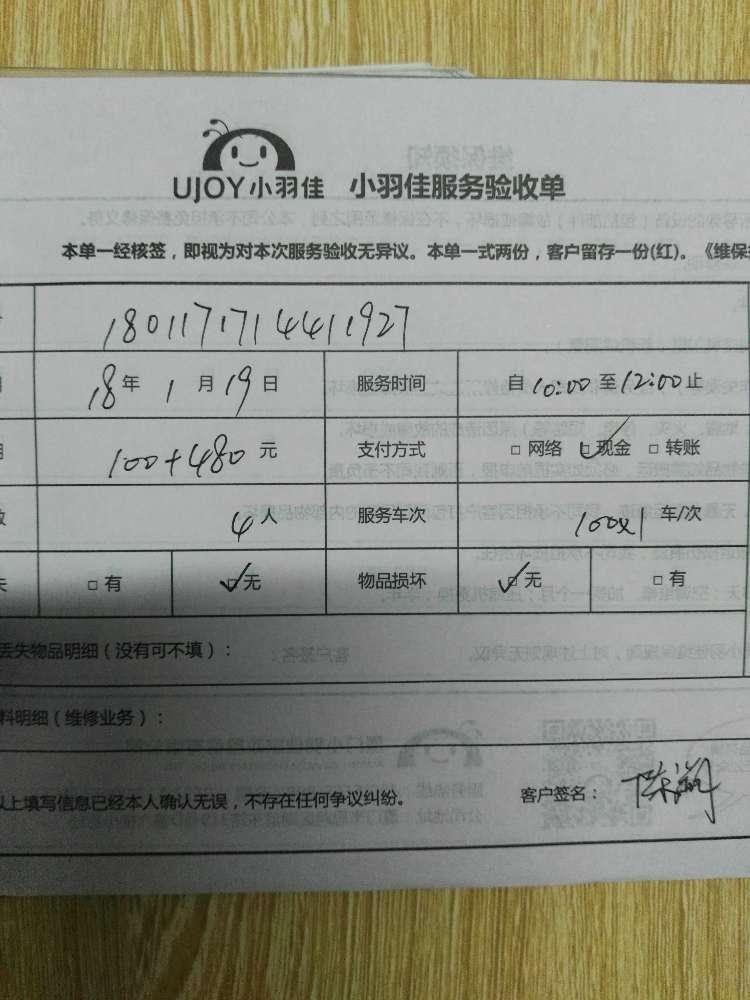 UJOY小羽佳 小羽佳服务验收单
本单一经核签，即视为对本次服务验收无异议。本单一式两份，客户留存一份(红)。《维保
1801171714411927
18年 1月19日 服务时间 自10:00至12:00止
100+480元 支付方式 □网络 ☑现金 □转账
4人 服务车次 100x1 车/次
□有 ☑无 物品损坏 ☑无 □有
丢失物品明细（没有可不填）：
料明细（维修业务）：
以上填写信息已经本人确认无误，不存在任何争议纠纷。 客户签名：